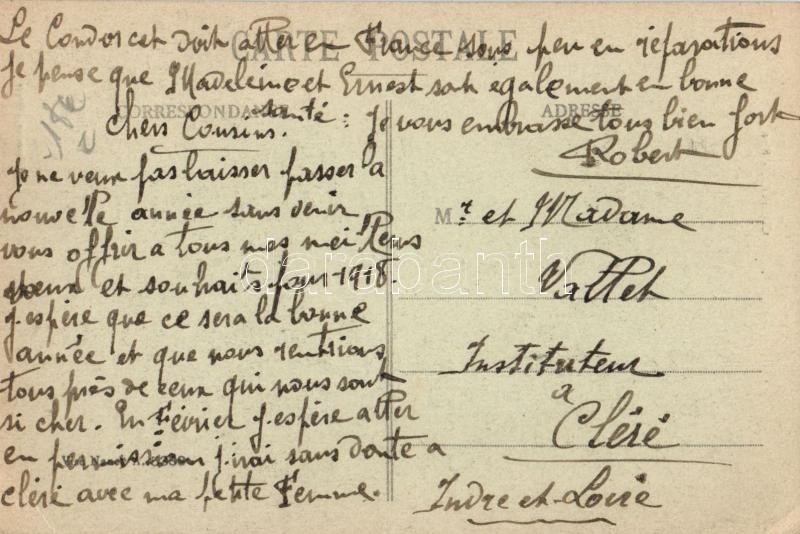 Le Condorcet doit aller en France sous peu en réparations
je pense que Madeleine et Ernest sont également en bonne
santé : Je vous embrasse tous bien fort
Robert
CARTE POSTALE
CORRESPONDANCE
ADRESSE
Chers Cousins.
Je ne veux pas laisser passer la
nouvelle année sans venir
vous offrir a tous mes meilleurs
vœux et souhaits pour 1918.
J'espère que ce sera la bonne
année et que nous rentrions
tous près de ceux qui nous sont
si cher. En Février j'espère aller
en permission j'irai sans doute a
cléré avec ma petite Femme.
Mr et Madame
Vallet
Instituteur
a
Cléré
Indre et-Loire
darabanth